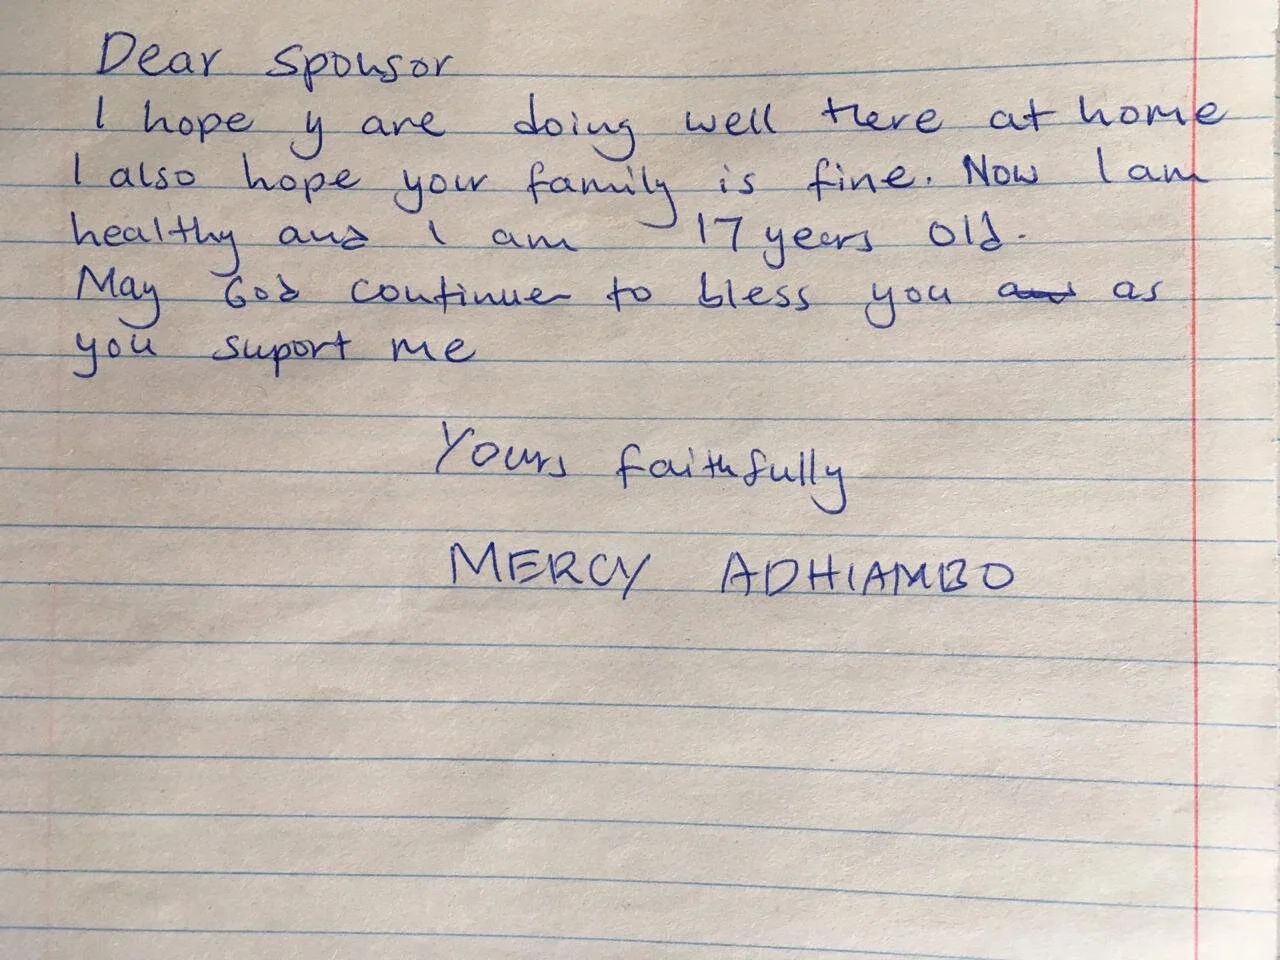 Dear Sponsor
I hope y are doing well there at home
I also hope your family is fine. Now I am
healthy and I am 17 years old.
May God continue to bless you and as
you suport me
Yours faithfully
MERCY ADHIAMBO